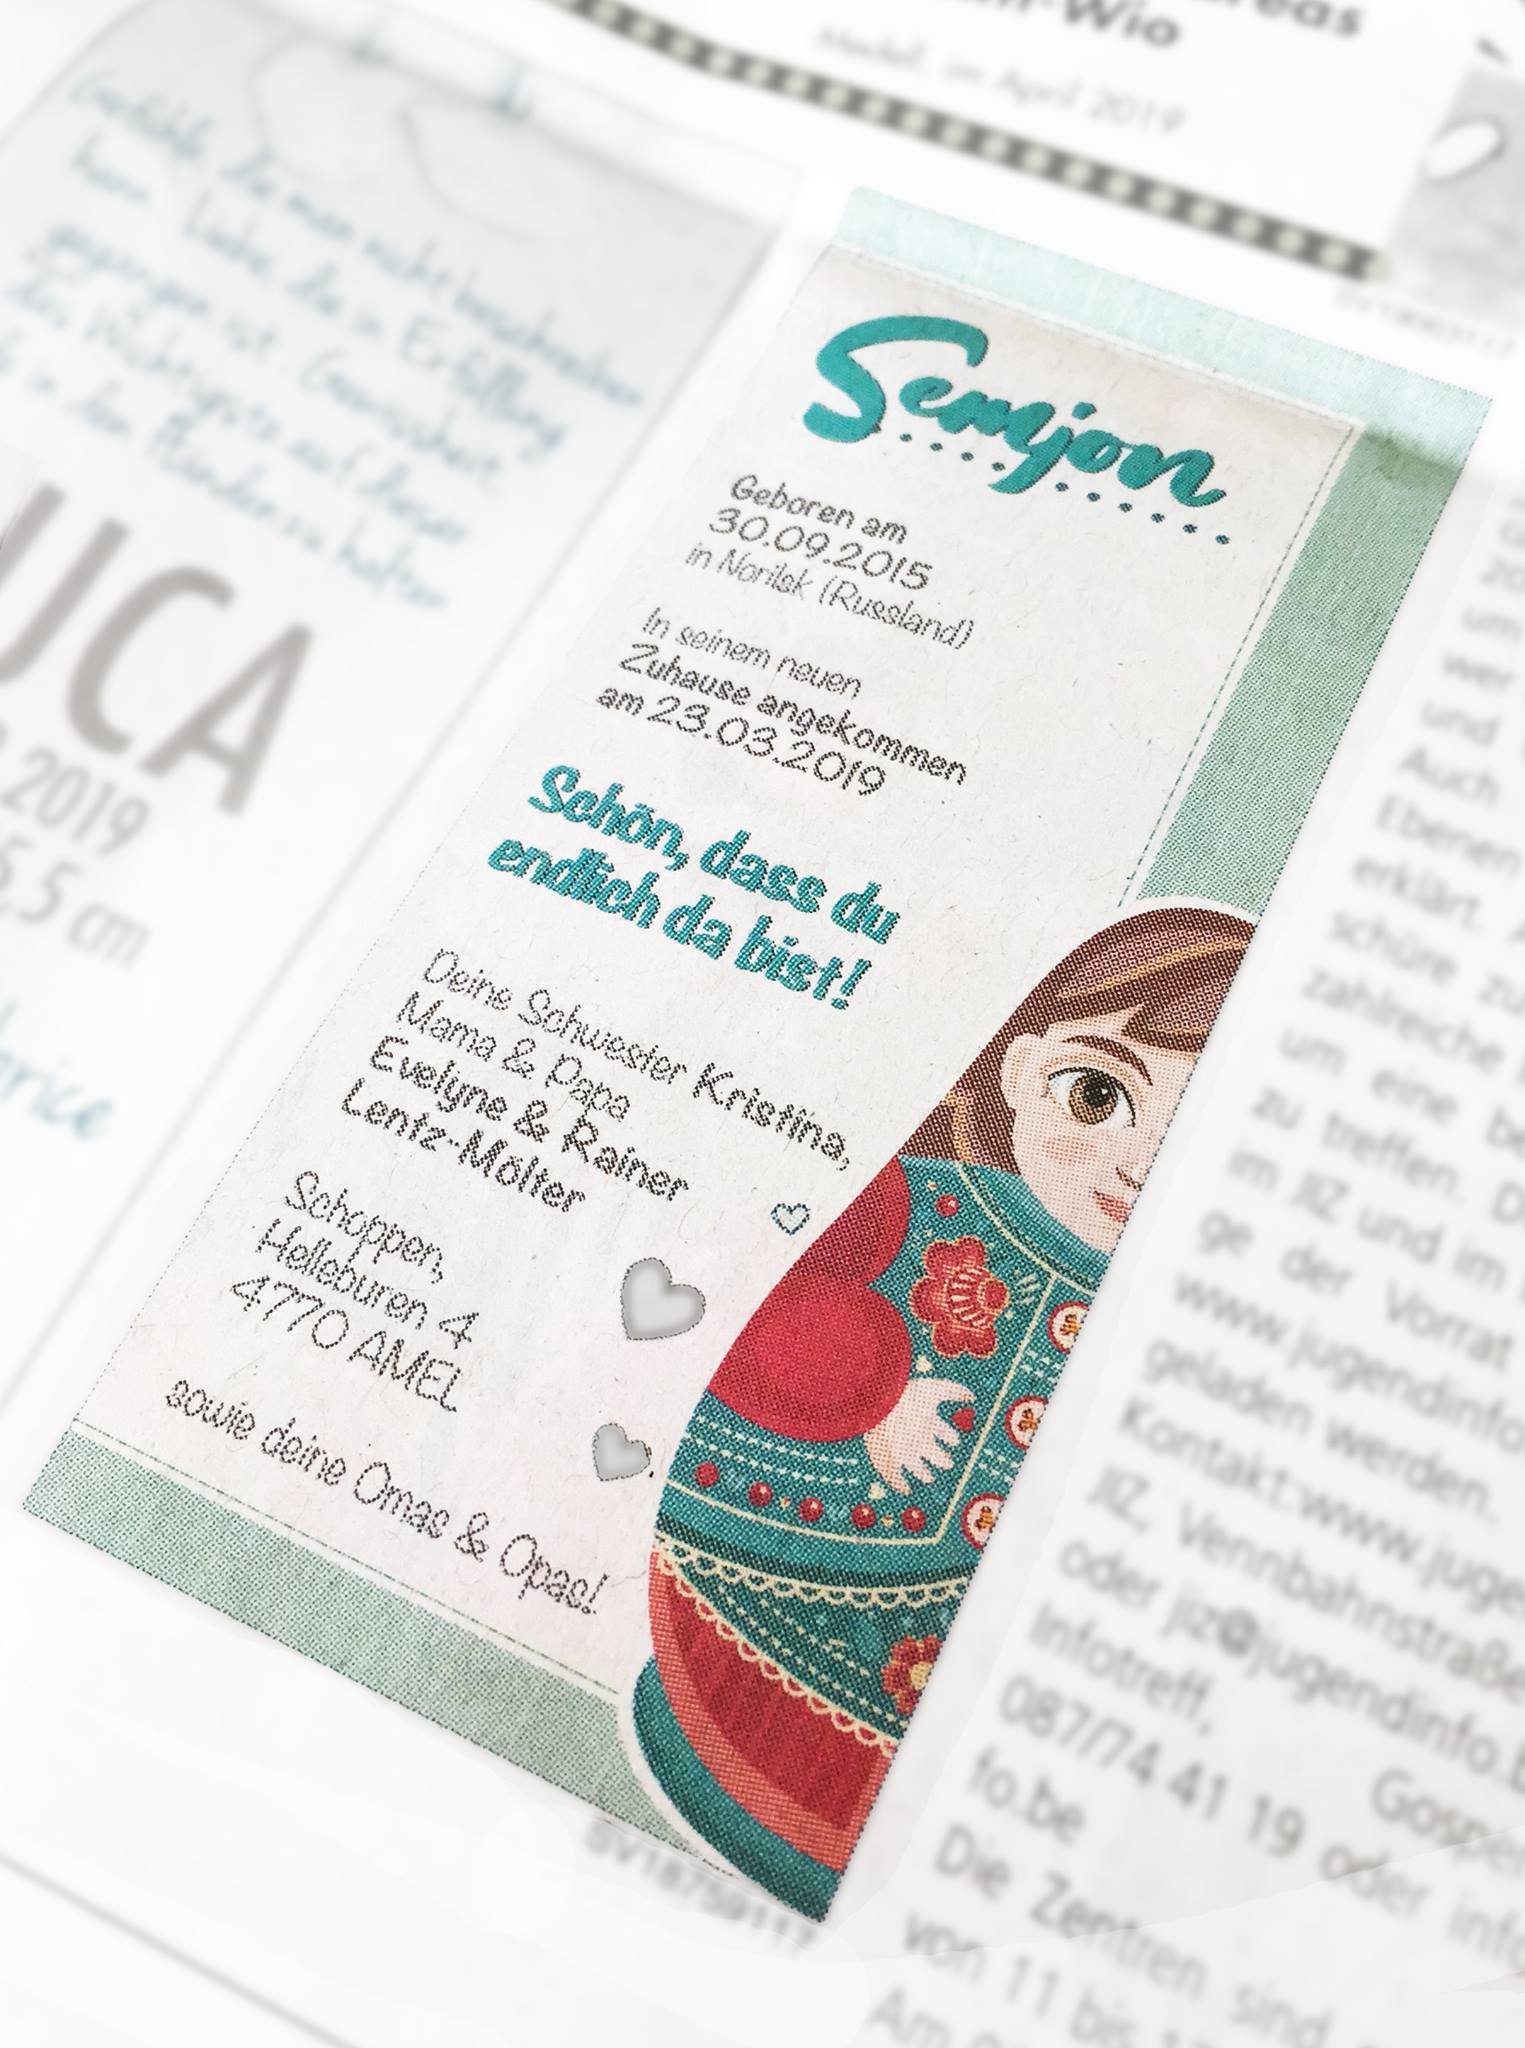 Wio
Medell, im April 2019
Gefühle, die man nicht beschreiben
kann. Liebe, die in Erfüllung
gegangen ist. Gewissheit,
das Wichtigste auf dieser
in den Händen zu halten.
UCA
2019
5,5 cm
Semjon
Geboren am
30.09.2015
in Norilsk (Russland)
In seinem neuen
Zuhause angekommen
am 23.03.2019
Schön, dass du
endlich da bist!
Deine Schwester Kristina,
Mama & Papa
Evelyne & Rainer
Lentz-Mölter
Schoppen,
Helleburen 4
4770 AMEL
sowie deine Omas & Opas!
SV18759117
um
wer
und
Auch
Ebenen
erklärt.
schüre zu
zahlreiche
um eine be
zu treffen. D
im JIZ und im
ge der Vorrat
www.jugendinfo
geladen werden.
Kontakt:www.juge
JIZ, Vennbahnstraße
oder jiz@jugendinfo.b
Infotreff, Gospe
087/74 41 19 oder info
fo.be
Die Zentren sind
von 11 bis 17
Am